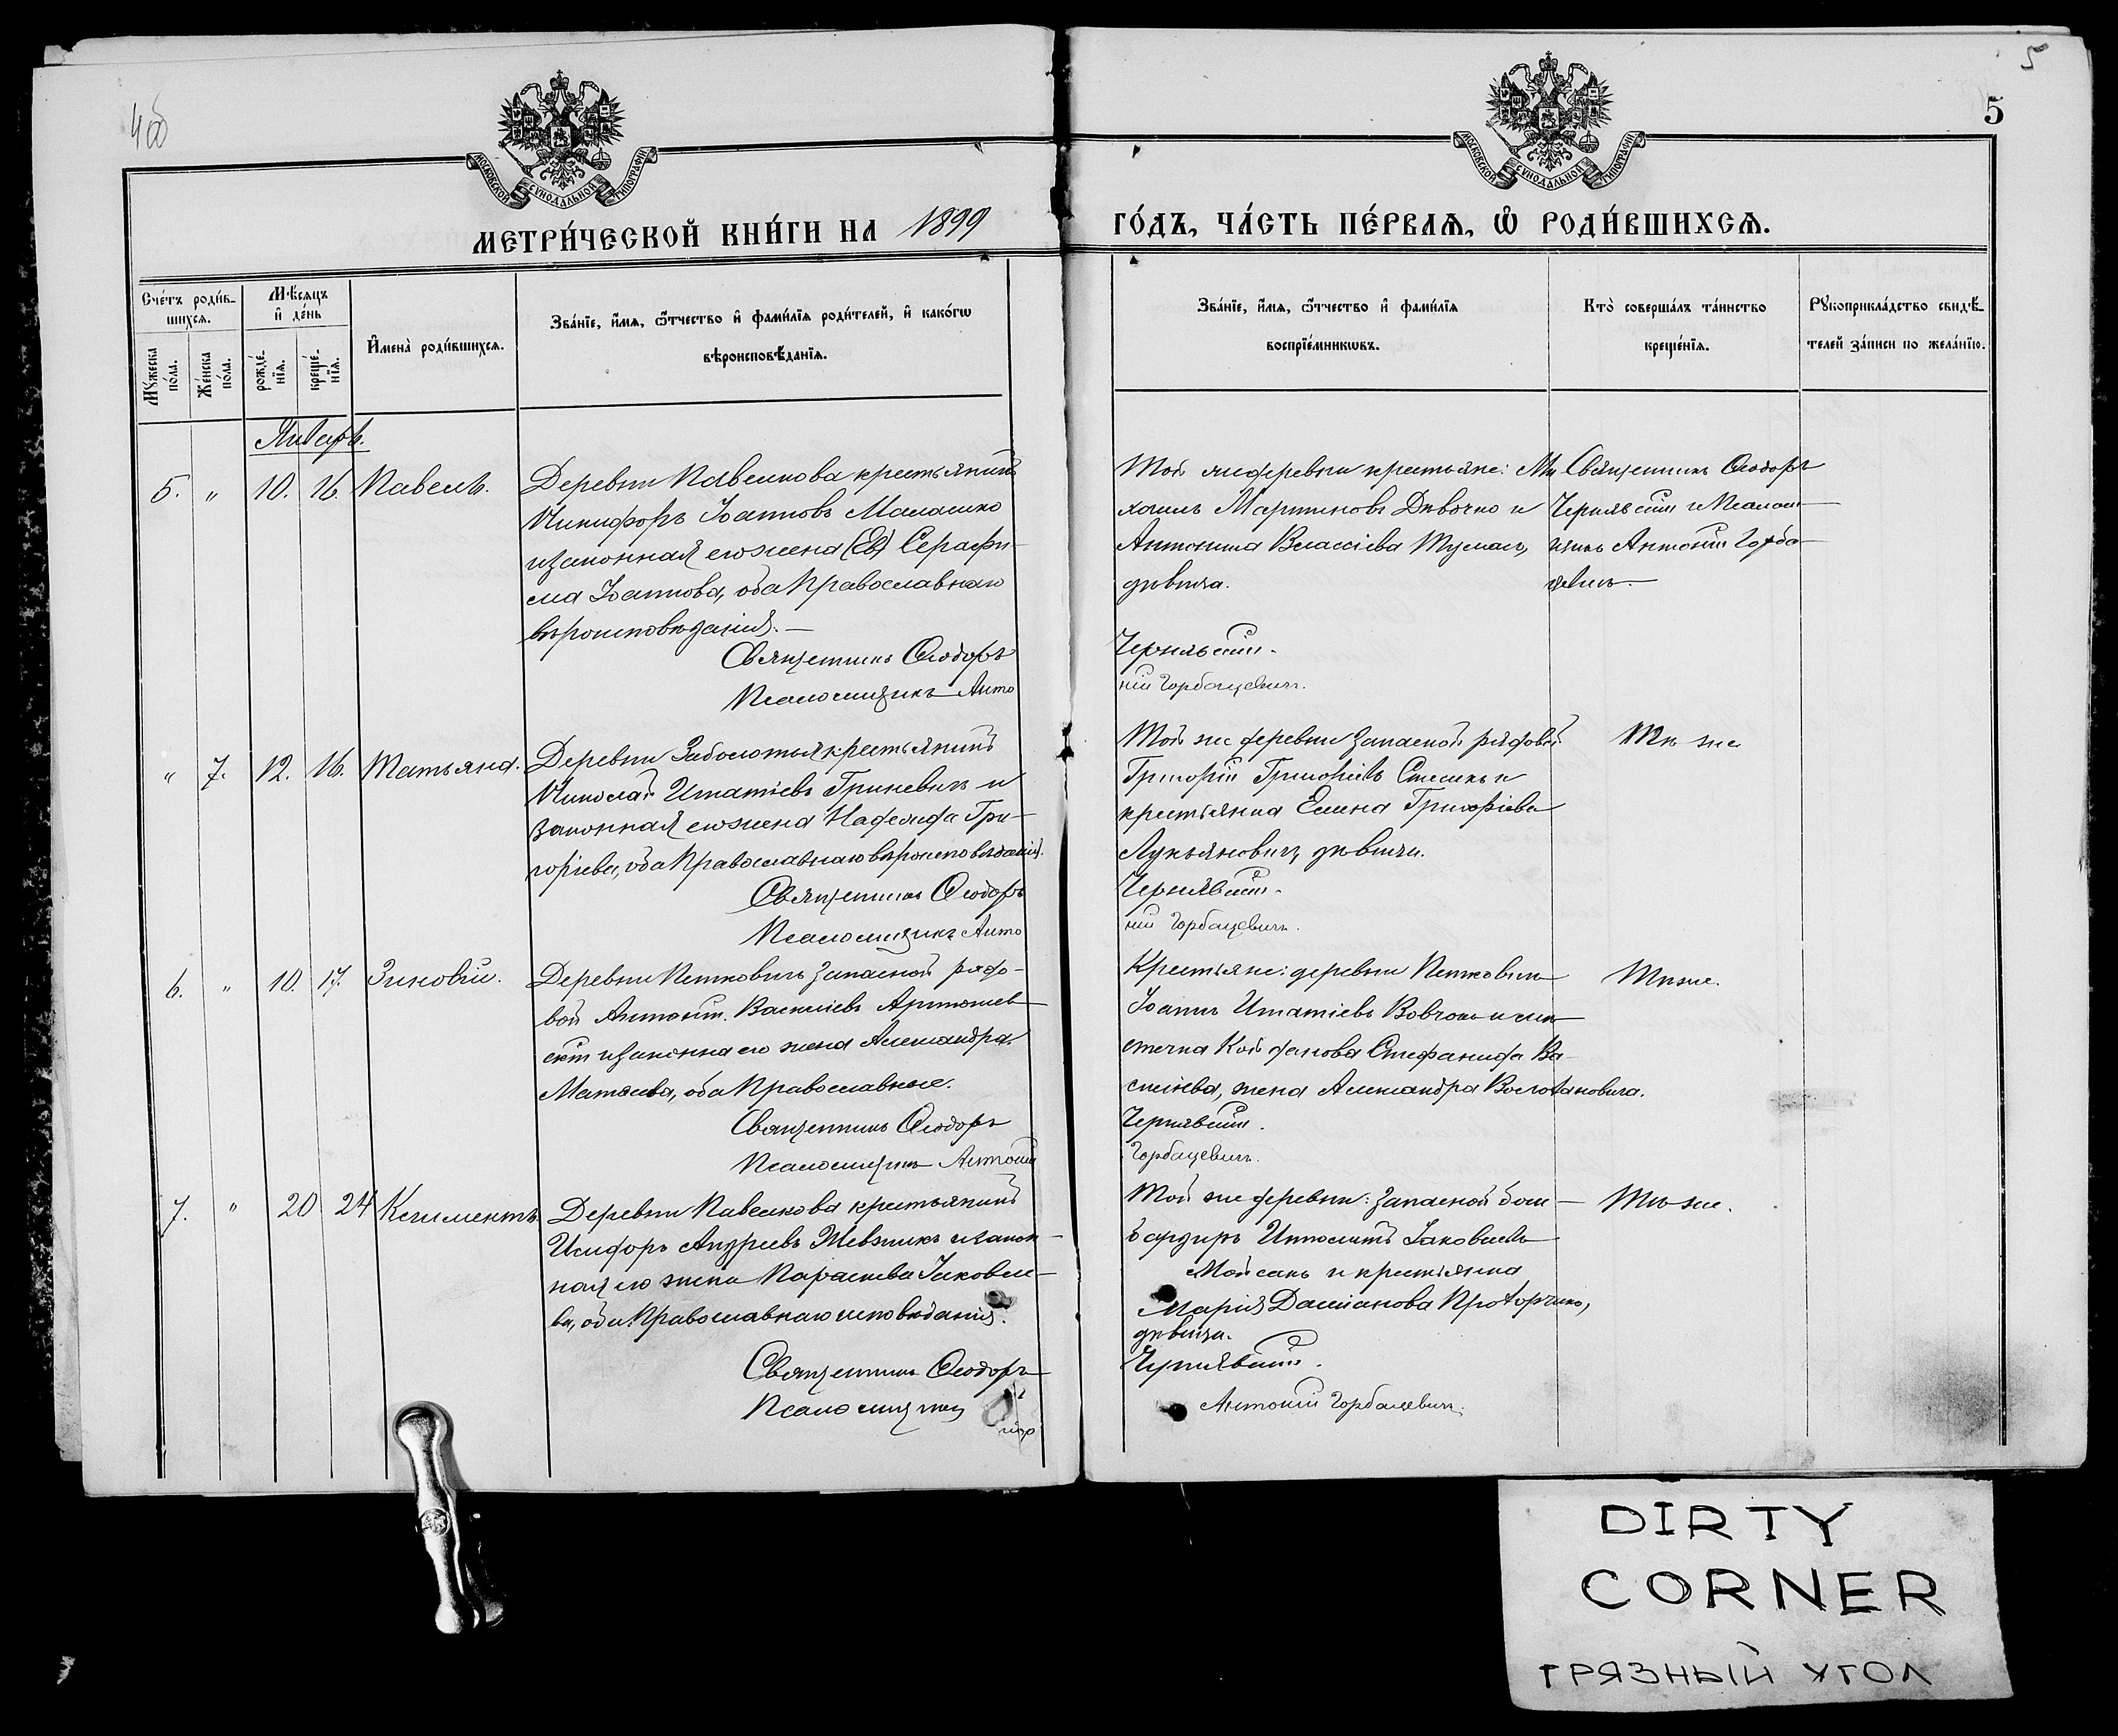 4об
5
5
МОСКОВСКОЙ СѴНОДАЛЬНОЙ ТИПОГРАФІИ
МОСКОВСКОЙ СѴНОДАЛЬНОЙ ТИПОГРАФІИ
МЕТРИ́ЧЕСКОЙ КНИ́ГИ НА 1899 ГО́ДЪ, ЧА́СТЬ ПЕ́РВАѦ, Ѡ҆ РОДИ́ВШИХСѦ.
Сче́тъ роди́в-
шихсѧ.
Мꙋ́жеска по́ла.
Же́нска по́ла.
Мѣ́сѧцъ и҆ де́нь
рожде́-
нїѧ.
креще́-
нїѧ.
И҆мена̀ роди́вшихсѧ.
Зва́нїе, и҆́мѧ, ѻ҆́тчество и҆ фами́лїѧ роди́телей, и҆ како́гѡ
вѣроисповѣ́данїѧ.
Зва́нїе, и҆́мѧ, ѻ҆́тчество и҆ фами́лїѧ
воспрїе́мникѡвъ.
Кто̀ соверша́лъ та́инство
креще́нїѧ.
Рꙋкоприкла́дство свидѣ́-
телей за́писи по жела́нїю.
Январь.
5. " 10. 16. Павелъ.
Деревни Павелкова крестьянинъ
Никифоръ Іоанновъ Маласико
и законная его жена Серафи-
ма Іоаннова, оба Православнаго
вѣроисповѣданія.—
Священникъ Ѳеодоръ
Псаломщикъ Анто
Той же деревни крестьяне: Ми
хаилъ Мартиновъ Дѣвочко и
Антонина Власіева
дѣвица.
Чернявскій.
ній Горбацевичъ.
Священникъ Ѳеодоръ
Чернявскій и Псалом-
щикъ Антоній Горба-
цевичъ.
" 7. 12. 16. Татьяна.
Деревни Заболотья крестьянинъ
Николай Игнатіевъ Гриневичъ и
законная его жена Надежда Гри-
горіева, оба Православнаго вѣроисповѣданія.
Священникъ Ѳеодоръ
Псаломщикъ Анто
Той же деревни запасной рядовой
Григорій Григоріевъ и
крестьянка Елена Григоріева
Лукьяновичъ, дѣвица.
Чернявскій.
ній Горбацевичъ.
Тѣ же
6. " 10. 17. Зиновій.
Деревни Петковичъ запасной рядо-
вой Антоній Василіевъ Артюшев-
скій и законная его жена Александра
Матѳеева, оба Православные.
Священникъ Ѳеодоръ
Псаломщикъ Антоній
Крестьяне: деревни Петковичъ
Іоаннъ Игнатіевъ Вовчокъ и мѣ-
стечка Койданова Стефанида Ва-
силіева, жена Александра
Чернявскій.
Горбацевичъ.
Тѣ же.
7. " 20 24 Климентъ.
Деревни Павелкова крестьянинъ
Исидоръ Андреевъ Шевчикъ и закон-
ная его жена Параскева Іаковле-
ва, оба Православнаго исповѣданія.
Священникъ Ѳеодоръ
Псаломщикъ
Той же деревни: запасной бом-
бардиръ Ипполитъ Іаковлевъ
Мойсакъ и крестьянка
Марія Даміанова
дѣвица.
Чернявскій.
Антоній Горбацевичъ.
Тѣ же.
DIRTY
CORNER
ГРЯЗНЫЙ УГОЛ